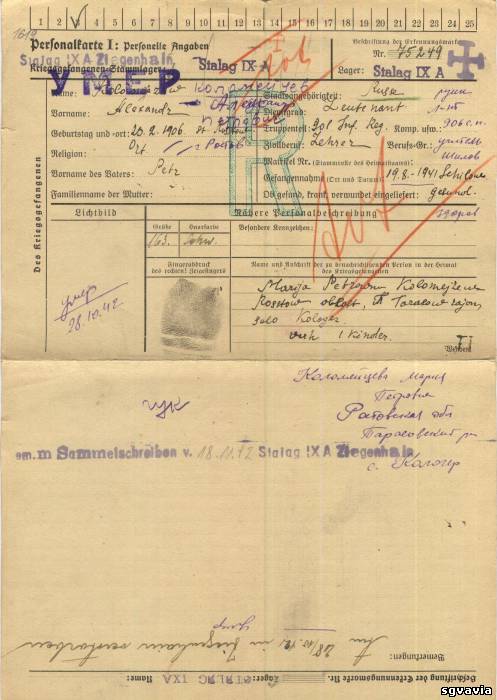 1 2 3 4 5 6 7 8 9 10 11 12 13 14 15 16 17 18 19 20 21 22 23 24 25
Personalkarte I: Personelle Angaben
Beschriftung der Erkennungsmarke
Stalag IX A Ziegenhain
Kriegsgefangenen-Stammlager: Stalag IX A
Nr. 75249
Lager: Stalag IX A
УМЕР
tot
Des Kriegsgefangenen
Name:
Коломейцев
Staatsangehörigkeit: Russe
русск
Vorname: Alexandr
Александр
Dienstgrad: Leutnant
л-т
Петрович
Truppenteil: 901 Inf. Reg. Komp. usw.:
Geburtstag und -ort: 20.2.1906.
Zivilberuf: Lehrer Berufs-Gr.:
учитель
Religion: Ort
г Ростов
Matrikel Nr. (Stammrolle des Heimatstaates):
Gefangennahme (Ort und Datum): 19.8.1941
Шилов
Vorname des Vaters: Petr
Ob gesund, krank, verwundet eingeliefert: gesund
здоров
Familienname der Mutter:
R
Lichtbild
Nähere Personalbeschreibung
Größe Haarfarbe Besondere Kennzeichen:
163. schw.
Fingerabdruck des rechten! Zeigefingers
Name und Anschrift der zu benachrichtigenden Person in der Heimat des Kriegsgefangenen
умер
28.10.42
tot
Marija Petrowna
Rostow oblast,
1 Kinder.
Wenden!
Коломейцева Мария
Петровна
Ростовская обл
Тарасовский р-н
с. Кологер
Sammelschreiben v. 18.11.42 Stalag IX A Ziegenhain
умер
Am 28/10.42 in Ziegenhain verstorben
Bemerkungen:
Beschriftung der Erkennungsmarke Nr.
Lager: STALAG IXA Name:
sgvavia